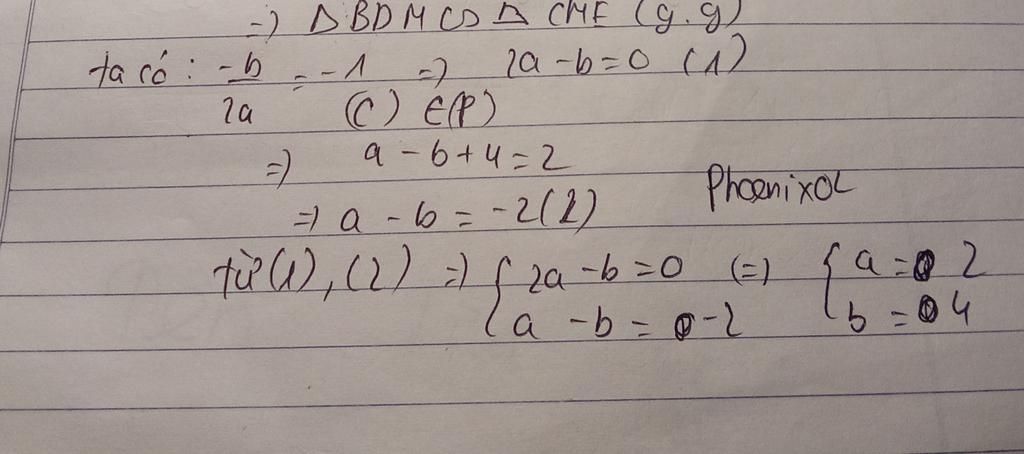 =) Δ BDM ∽ Δ CME (g.g)
ta có: -b/2a = -1 =) 2a - b = 0 (1)
(C) ∈ (P)
=) a - b + 4 = 2
=) a - b = -2 (2)
Phoenixol
từ (1), (2) =) { 2a - b = 0 (=) { a = 2
a - b = -2 b = 4